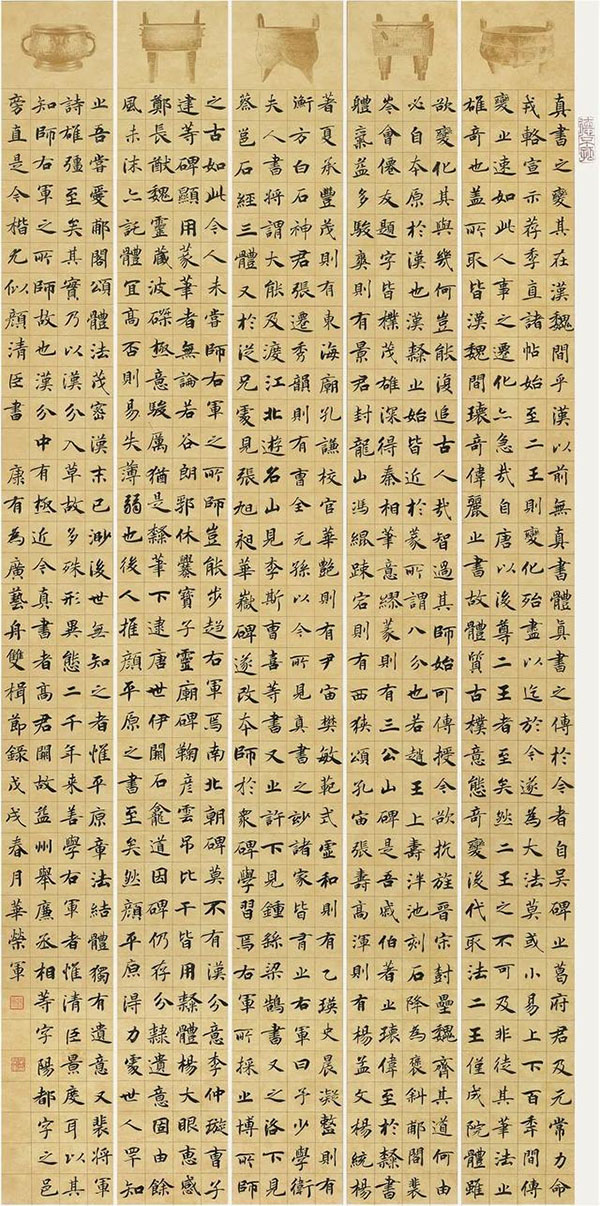 真書之變其在漢魏間乎漢以前無真書體真書之傳於今者自吳碑之葛府君及元常力命
戎輅宣示荐季直諸帖始至二王則變化殆盡以迄於今遂為大法莫或小易上下百年間傳
變之速如此人事之遷化亦急哉自唐以後尊二王者至矣然二王之不可及非徒其筆法之
雄奇也蓋所取皆漢魏間瓌奇偉麗之書故體質古樸意態奇變後代取法二王僅成院體雖
欲變化其與幾何豈能復追古人哉智過其師始可傳授今欲抗旌晉宋封壘魏齊其道何由
必自本原於漢也漢隸之始皆近於篆所謂八分也若趙王上壽泮池刻石降為褒斜郙閣裴
岑會僊友題字皆樸茂雄深得秦相筆意繆篆則有三公山碑是吾戚伯著之瓌偉至於隸書
體氣益多駿爽則有景君封龍山馮緄踈宕則有西狹頌孔宙張壽高渾則有楊孟文楊統楊
著夏承豐茂則有東海廟孔謙校官華艷則有尹宙樊敏範式虛和則有乙瑛史晨凝整則有
衡方白石神君張遷秀韻則有曹全元孫以今所見真書之妙諸家皆有之右軍曰予少學衛
夫人書將謂大能及渡江北遊名山見李斯曹喜等書又之許下見鍾繇梁鵠書又之洛下見
蔡邕石經三體又於從兄處見張旭昶華嶽碑遂改本師於眾碑學習焉右軍所採之博所師
之古如此今人未嘗師右軍之所師豈能步趨右軍焉南北朝碑莫不有漢分意李仲璇曹子
建等碑顯用篆筆者無論若谷朗郭休爨寶子靈廟碑鞠彥雲弔比干皆用隸體楊大眼惠感
鄭長猷魏靈藏波磔極意駿厲猶是隸筆下逮唐世伊闕石龕道因碑仍存分隸遺意固由餘
風未沫亦託體宜高否則易失薄弱也後人推顏平原之書至矣然顏平原得力處世人罕知
止吾嘗愛郙閣頌體法茂密漢末已渺後世無知之者惟平原章法結體獨有遺意又裴將軍
詩雄彊至矣其實乃以漢分入草故多殊形異態二千年來善學右軍者惟清臣景度耳以其
知師右軍之所師故也漢分中有極近今真書者高君闕故益州舉廉丞相等字陽都字之邑
旁直是今楷尤似顏清臣書 康有為廣藝舟雙楫節錄戊戌春月華榮軍